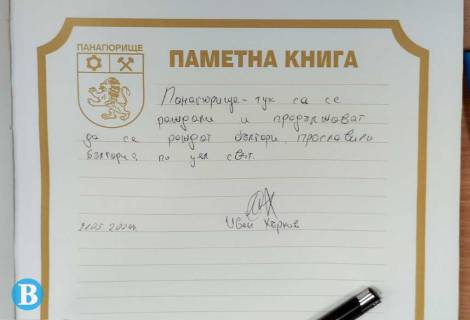 ПАНАГЮРИЩЕ
ПАМЕТНА КНИГА
Панагюрище - тук са се
раждали и продължават
да се раждат българи, прославили
България по цял свят.
21.05.2024г.
Ивай Хърков
B